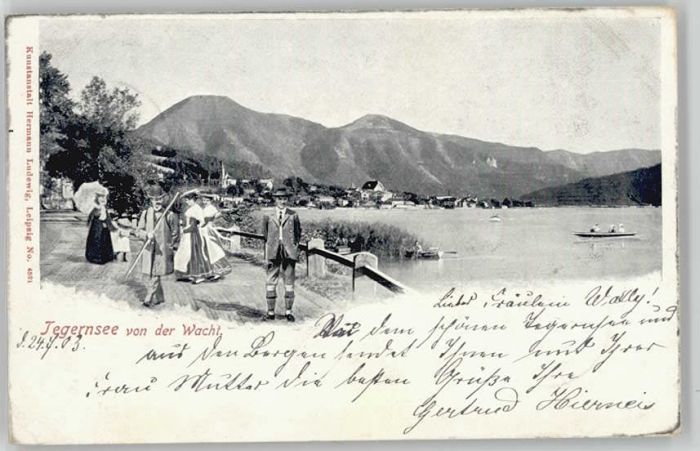 Kunstanstalt Hermann Ludewig, Leipzig No. 4571
Tegernsee von der Wacht.
Liebes Fräulein Wally!
d. 24. 03. dem schönen Tegernsee und
aus den Bergen sendet Ihnen und Ihrer
Frau Mutter die besten Grüße Ihre
Gertrud Hierneis